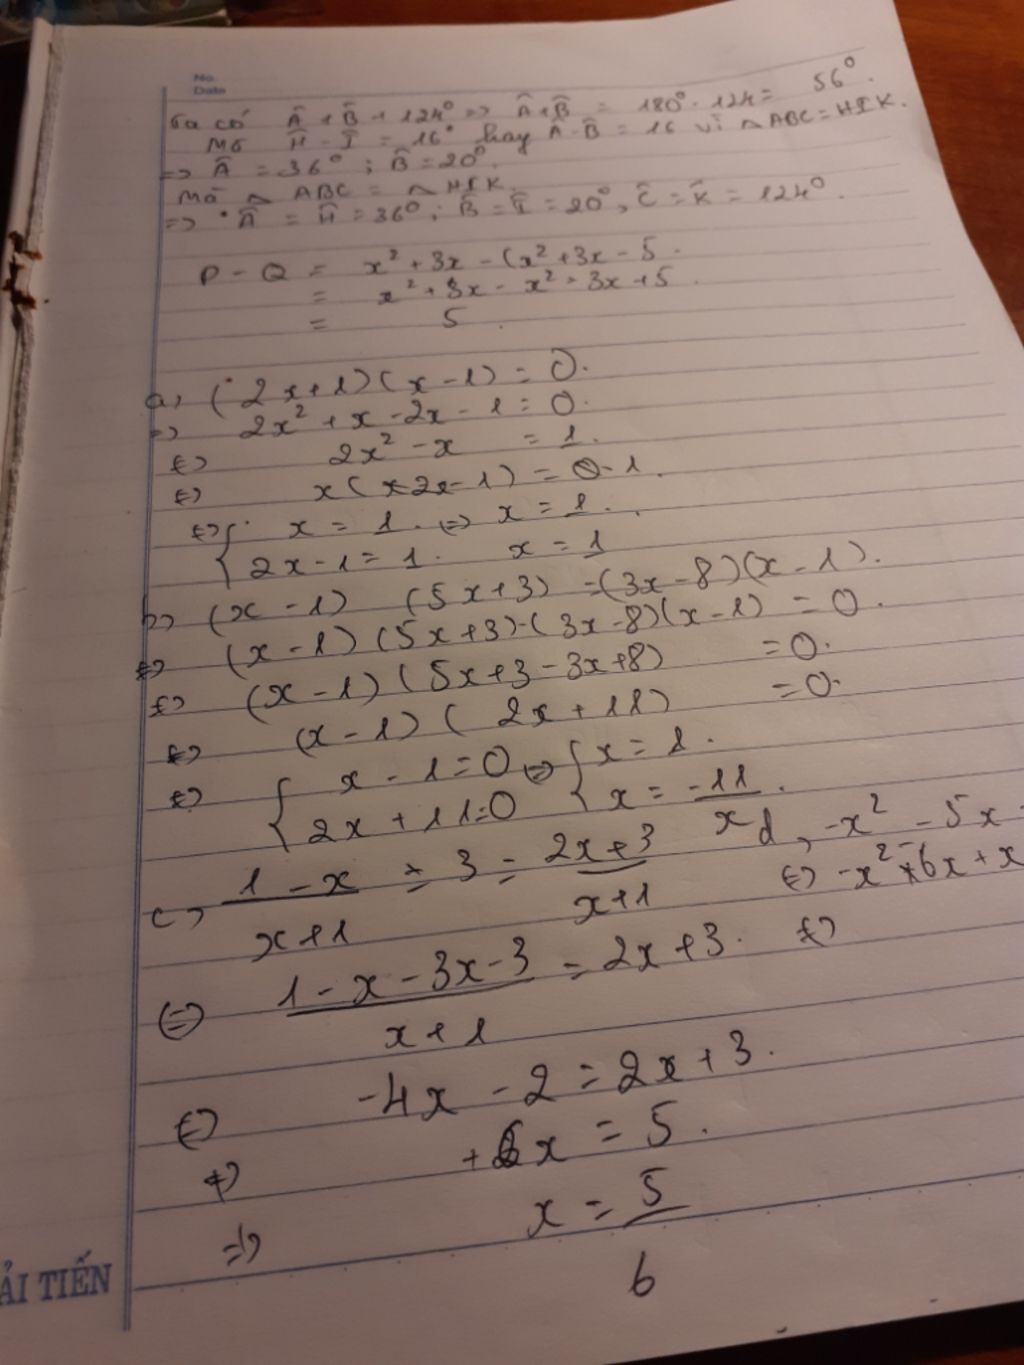 No.
Date
Ta có Â + B̂ + 124° => Â+B̂ = 180° - 124 = 56°.
Mà Ĥ - Î = 16° hay Â-B̂ = 16 vì △ABC = HIK.
=> Â = 36° ; B̂ = 20°.
Mà △ ABC = △ HIK.
=> Â = Ĥ = 36° ; B̂ = Î = 20°, Ĉ = K̂ = 124°.
P - Q = x² + 3x - (x² + 3x - 5.
= x² + 3x - x² - 3x + 5.
= 5.
a, (2x+1)(x-1) = 0.
=> 2x² + x - 2x - 1 = 0.
<=> 2x² - x = 1.
<=> x(2x-1) = 0-1.
<=> { x = 1. <=> x = 1.
2x - 1 = 1. x = 1
b, (x - 1) (5x+3) = (3x-8)(x-1).
<=> (x-1)(5x+3)-(3x-8)(x-1) = 0.
<=> (x-1)(5x+3-3x+8) = 0.
<=> (x-1)(2x+11) = 0.
<=> { x - 1 = 0 <=> { x = 1.
2x + 11=0 x = -11/x.
c, 1 - x/x+1 + 3 = 2x+3/x+1
d, -x² - 5x
<=> -x² + 6x + x
<=> 1 - x - 3x - 3/x + 1 = 2x+3. <=>
<=> -4x - 2 = 2x+3.
<=> + 6x = 5.
=> x = 5/6
ẢI TIẾN